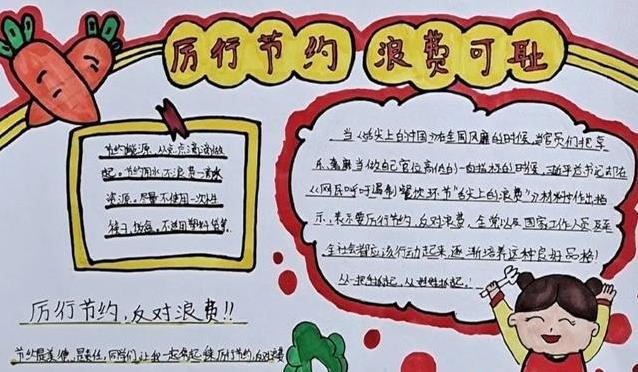 厉行节约 浪费可耻
节约能源,从点点滴滴做
起。节约用水不浪费一滴水
资源。尽量不使用一次性
筷子、饭盒。不适用塑料袋等。
厉行节约,反对浪费!!
节约是美德,是责任,同学们,让我一起
厉行节约,反对浪费
当《舌尖上的中国》在全国风靡的时候,当官员们把享
乐
当做自己官位高低的一向指标的时候,习近平总书记却在
《网民呼吁遏制餐饮环节"舌尖上的浪费"》材料作出指
示,表示要厉行节约,反对浪费,全党以及国家工作人员及至
全社会都应该行动起来,逐渐培养这种良好品格!